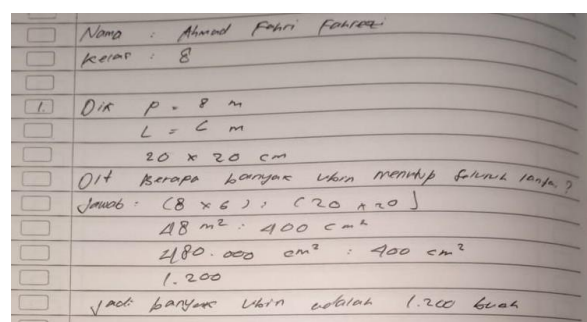 Nama : Ahmad Fahri Fahrezi
Kelas : 8
1. Dik P = 8 m
L = 6 m
20 x 20 cm
Dit Berapa banyak ubin menutup seluruh lantai ?
Jawab : (8 x 6) : (20 x 20)
48 m² : 400 cm²
480.000 cm² : 400 cm²
1.200
Jadi banyak ubin adalah 1.200 buah